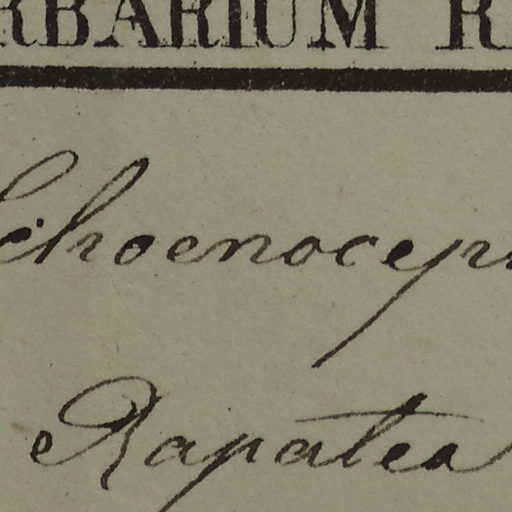 RBARIUM R
Schoenocep
Rapatea